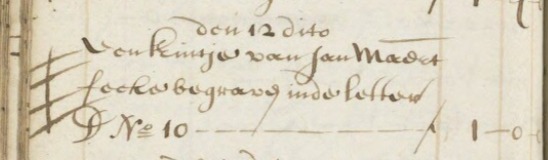 den 12 dito
Een kintje van Jan Maert
secke begraven inde letter
D No 10 1-0